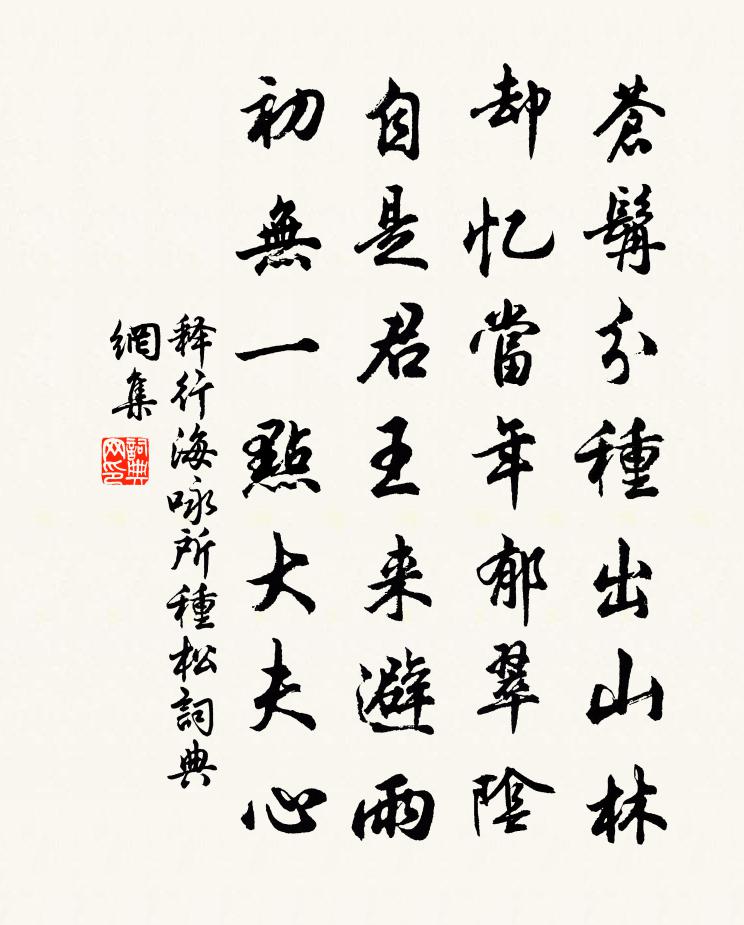 蒼髯分種出山林
却忆當年郁翠陰
自是君王来避雨
初無一點大夫心
释行海咏所種松詞典
網集
詞典网印